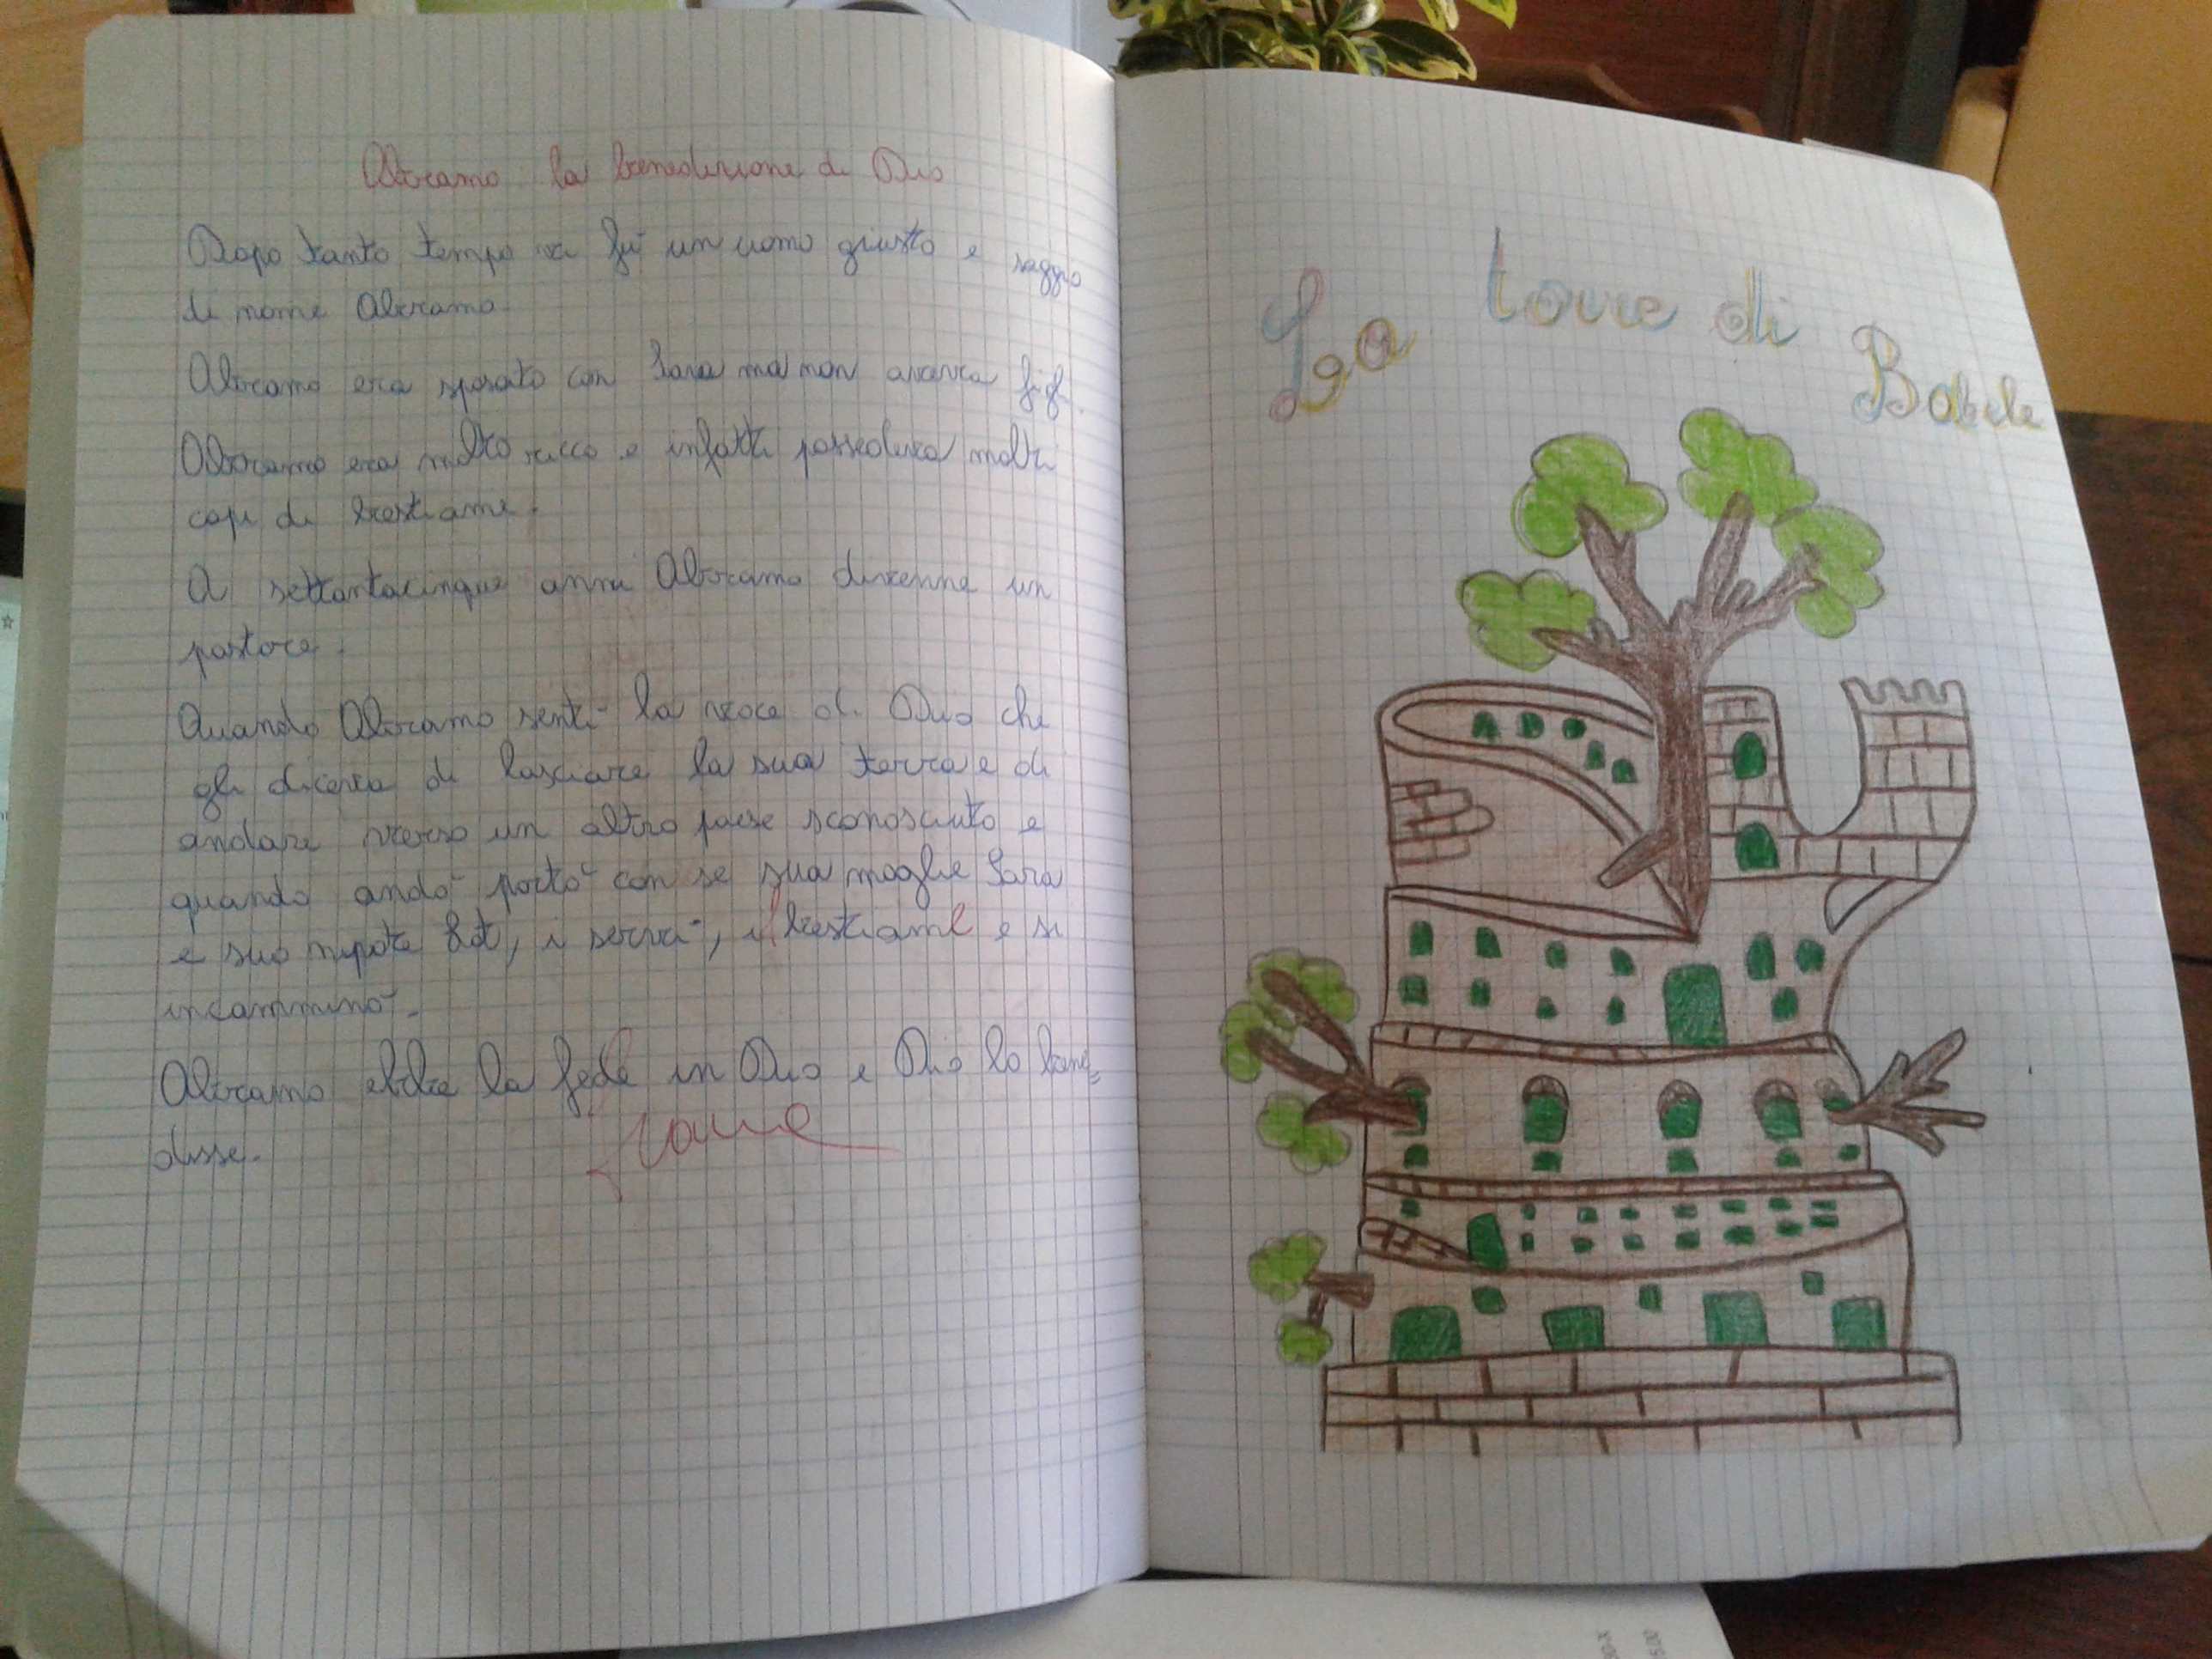 Abramo la benedizione di Dio
Dopo tanto tempo vi fu un uomo giusto e saggio
di nome Abramo.
Abramo era sposato con Sara ma non aveva figli.
Abramo era molto ricco e infatti possedeva molti
capi di bestiame.
A settantacinque anni Abramo divenne un
pastore.
Quando Abramo sentì la voce di Dio che
gli diceva di lasciare la sua terra e di
andare verso un altro paese sconosciuto e
quando andò portò con se sua moglie Sara
e suo nipote Lot, i servi, il bestiame e si
incamminò.
Abramo ebbe la fede in Dio e Dio lo bene=
disse.
La torre di Babele